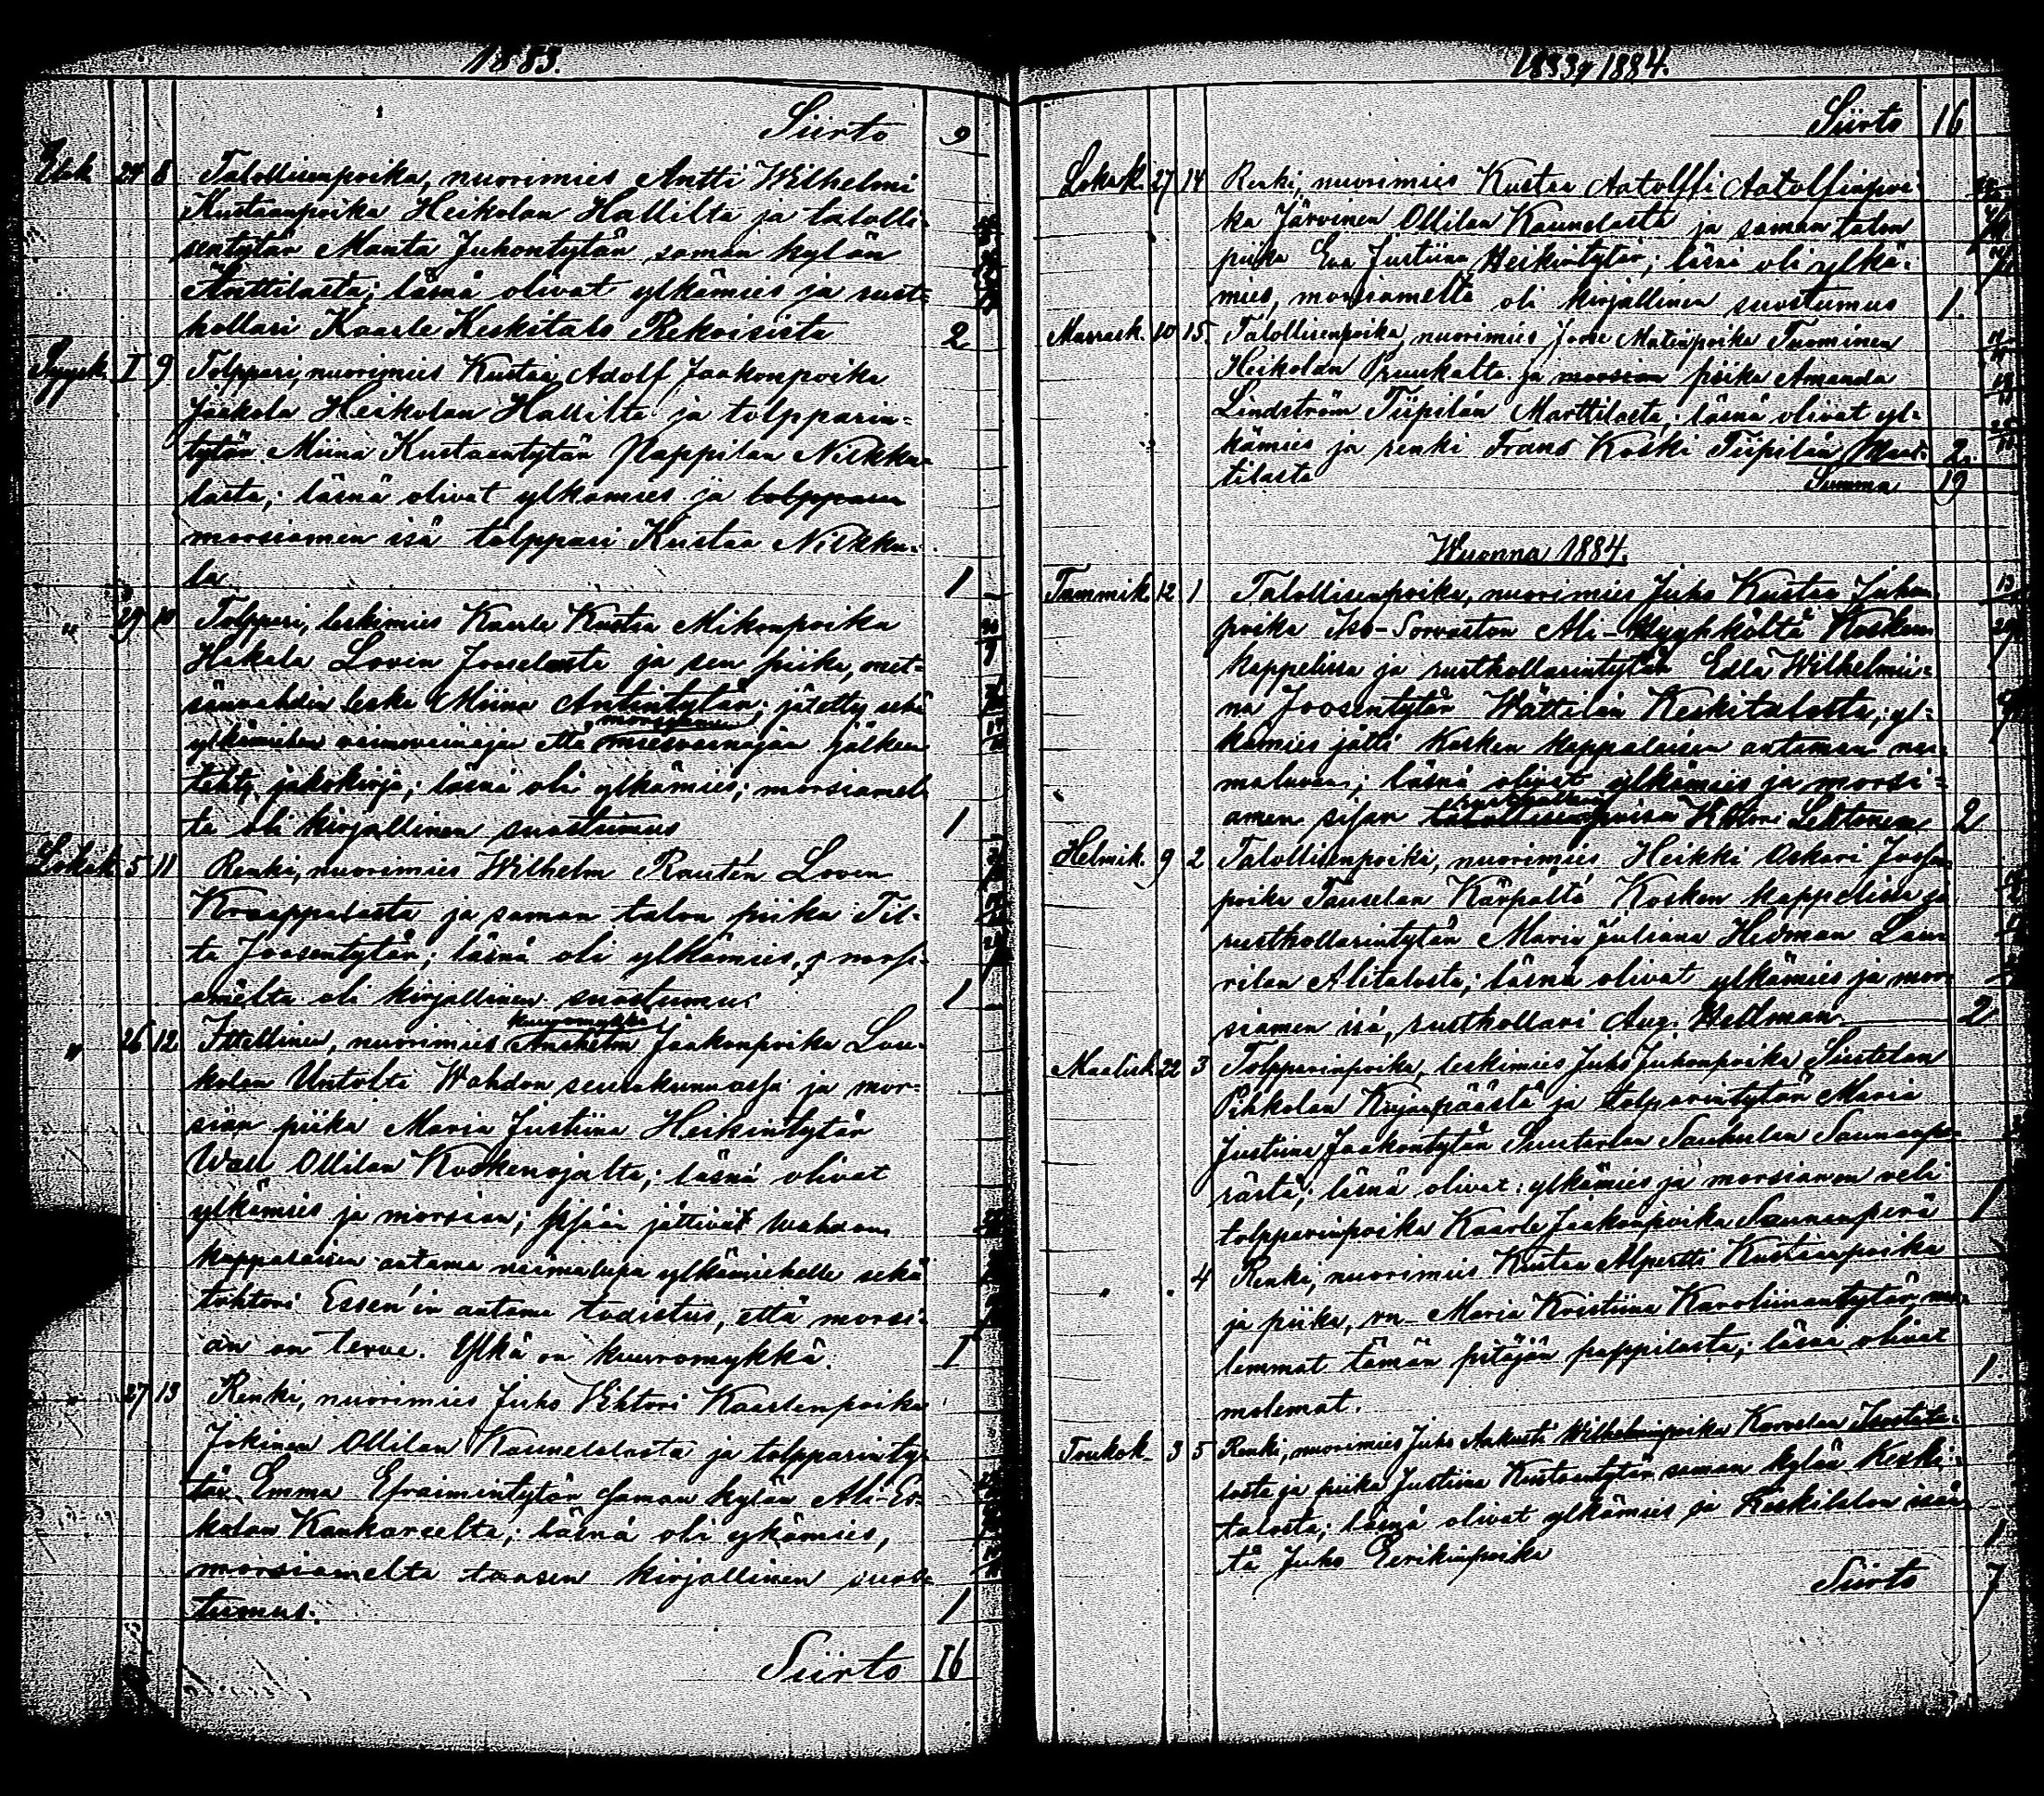 1883.
Siirto 9
Elok 24 8 Talollisenpoika, nuorimies Antti Wilhelmi
Kustaanpoika Heikolan Hallilta ja talolli-
sentytär Manta Juhontytär saman kylän
Änttilasta; läsnä olivat ylkämies ja rust-
hollari Kaarle Keskitalo Rekoisista 2
Syysk. 1 9 Tolppari, nuorimies Kustaa Adolf Jaakonpoika
Jaakola Heikolan Hallilta ja tolpparin-
tytär Miina Kustaantytär Pappilan Nikku-
lasta; läsnä olivat ylkämies ja tolpparin
morsiamen isä tolppari Kustaa Nikku-
la 1
" 29 10 Tolppari, leskimies Kaarle Kustaa Mikonpoika
Hakala Lovin Jooselasta ja sen piika, met-
sänvahdin leski Miina Antintytär; jätetty sekä
morsiamen
ylkämiehen vaimovainajan että miesvainajan jälkeen
tehty jakokirja; läsnä oli ylkämies; morsiamel-
ta oli kirjallinen suostumus 1
Lokak. 5 11 Renki, nuorimies Wilhelm Rautén Lovin
Kraappalasta ja saman talon piika Til-
ta Joosentytär; läsnä oli ylkämies, morsi-
amelta oli kirjallinen suostumus 1
kuuromykkä
" 26 12 Itsellinen, nuorimies Anshelm Jaakonpoika Lou-
kolan Untolta Wahdon seurakunnassa ja mor-
sian piika Maria Justiina Heikintytär
Wall Ollilan Koskenojalta; läsnä olivat
ylkämies ja morsian; sisään jättivät Wahdon
kappalaisen antama naimalupa ylkämiehelle sekä
tohtori Essen'in antama todistus, että morsi-
an on terve. Ylkä on kuuromykkä. 1
" 27 13 Renki, nuorimies Juho Vihtori Kaarlenpoika
Jokinen Ollilan Kaunelasta ja tolpparinty-
tär Emma Efraimintytär saman kylän Ali-Er-
kolan Kankareelta; läsnä oli ylkämies,
morsiamelta taasen kirjallinen suos-
tumus. 1
Siirto 16
1883 & 1884.
Siirto 16
Lokak. 27 14 Renki, nuorimies Kustaa Aatolffi Aatolfinpoi-
ka Järvinen Ollilan Kaunelasta ja saman talon
piika Eva Justiina Heikintytär; läsnä oli ylkä-
mies, morsiamelta oli kirjallinen suostumus 1.
Marrask. 10 15. Talollisenpoika, nuorimies Joose Matinpoika Tuominen
Heikolan Pruukalta ja morsian piika Amanda
Lindström Tiipilän Marttilasta; läsnä olivat yl-
kämies ja renki Frans Koski Tiipilän Mart- 2.
tilasta Summa 19
Wuonna 1884.
Tammik. 12 1 Talollisenpoika, nuorimies Juho Kustaa Juhon
poika Iso-Sorvaston Ali-Kyyhkältä Kosken
kappelissa ja rusthollarintytär Edla Wilhelmii-
na Joosentytär Wättilän Keskitalosta; yl-
kämies jätti Kosken kappalaisen antaman nai-
maluvan; läsnä olivat ylkämies ja morsi-
rusthollari
amen sijan talollisenpoika Lehtonen 2
Helmik. 9 2 Talollisenpoika, nuorimies Heikki Oskari Joosen
poika Tauselan Kärpältä Kosken kappelissa ja
rusthollarintytär Maria Juliana Hedman Lau-
rilan Alitalosta; läsnä olivat ylkämies ja mor-
siamen isä, rusthollari Aug. Hedman 2
Maalisk. 22 3 Tolpparinpoika, leskimies Juho Juhonpoika
Pihkolan Kujanpäästä ja tolpparintytär Maria
Justiina Jaakontytär Suutarlan Sauhulan Saunanpe-
rästä; läsnä olivat: ylkämies ja morsiamen veli
tolpparinpoika Kaarle Jaakonpoika Saunanperä 1
" " 4 Renki, nuorimies Kustaa Alpertti Kustaanpoika
ja piika, Maria Kristiina Karoliinantytär, mo-
lemmat tämän pitäjän pappilasta; läsnä olivat
molemat. 1.
Toukok. 3 5 Renki, nuorimies Juho Aukusti Wilhelminpoika Korvelan Isosta-
losta ja piika Justiina Kustaantytär saman kylän Keski-
talosta; läsnä olivat ylkämies ja Keskitalon isän-
tä Juho Eerikinpoika 1
Siirto 7